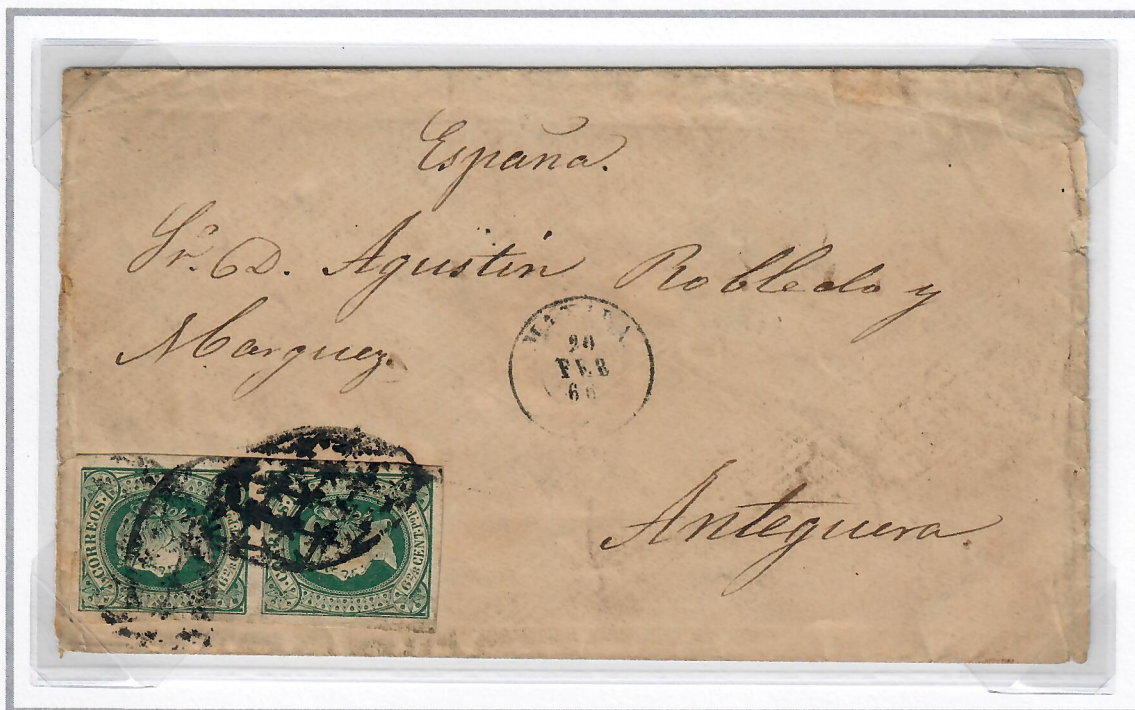 España.
Sr. D. Agustin Robledo y
Marquez.
MANILA
20
FEB
Antequera.
CORREOS